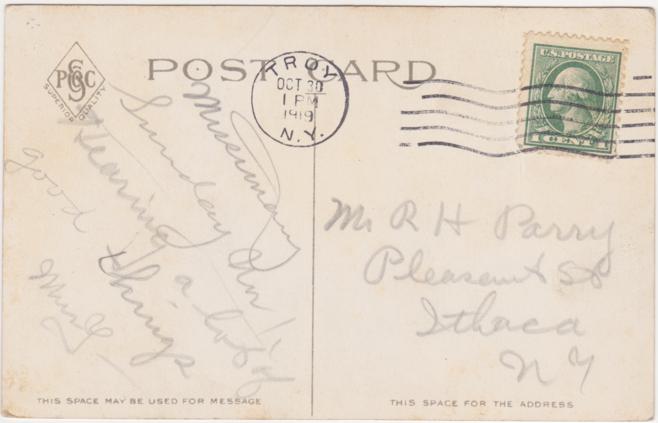 POST CARD
SUPERIOR QUALITY
TROY
OCT 30
1 PM
1919
N.Y.
U.S. POSTAGE
1 CENT 1
Missionary
Sunday
Hearing a lot of
good things
Mr R H Parry
Pleasant St
Ithaca
N Y
THIS SPACE MAY BE USED FOR MESSAGE
THIS SPACE FOR THE ADDRESS